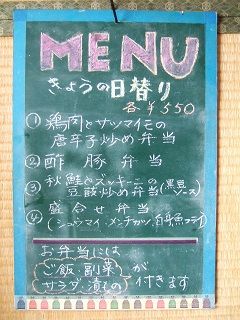 MENU
きょうの日替り
各¥550
① 鶏肉とサツマイモの
唐辛子炒め弁当
② 酢豚弁当
③ 秋鮭とズッキーニの
豆鼓炒め弁当(黒豆ソース)
④ 盛合せ弁当
(シュウマイ・メンチカツ・白身魚フライ)
お弁当には
ご飯・副菜
サラダ・漬もの
が付きます